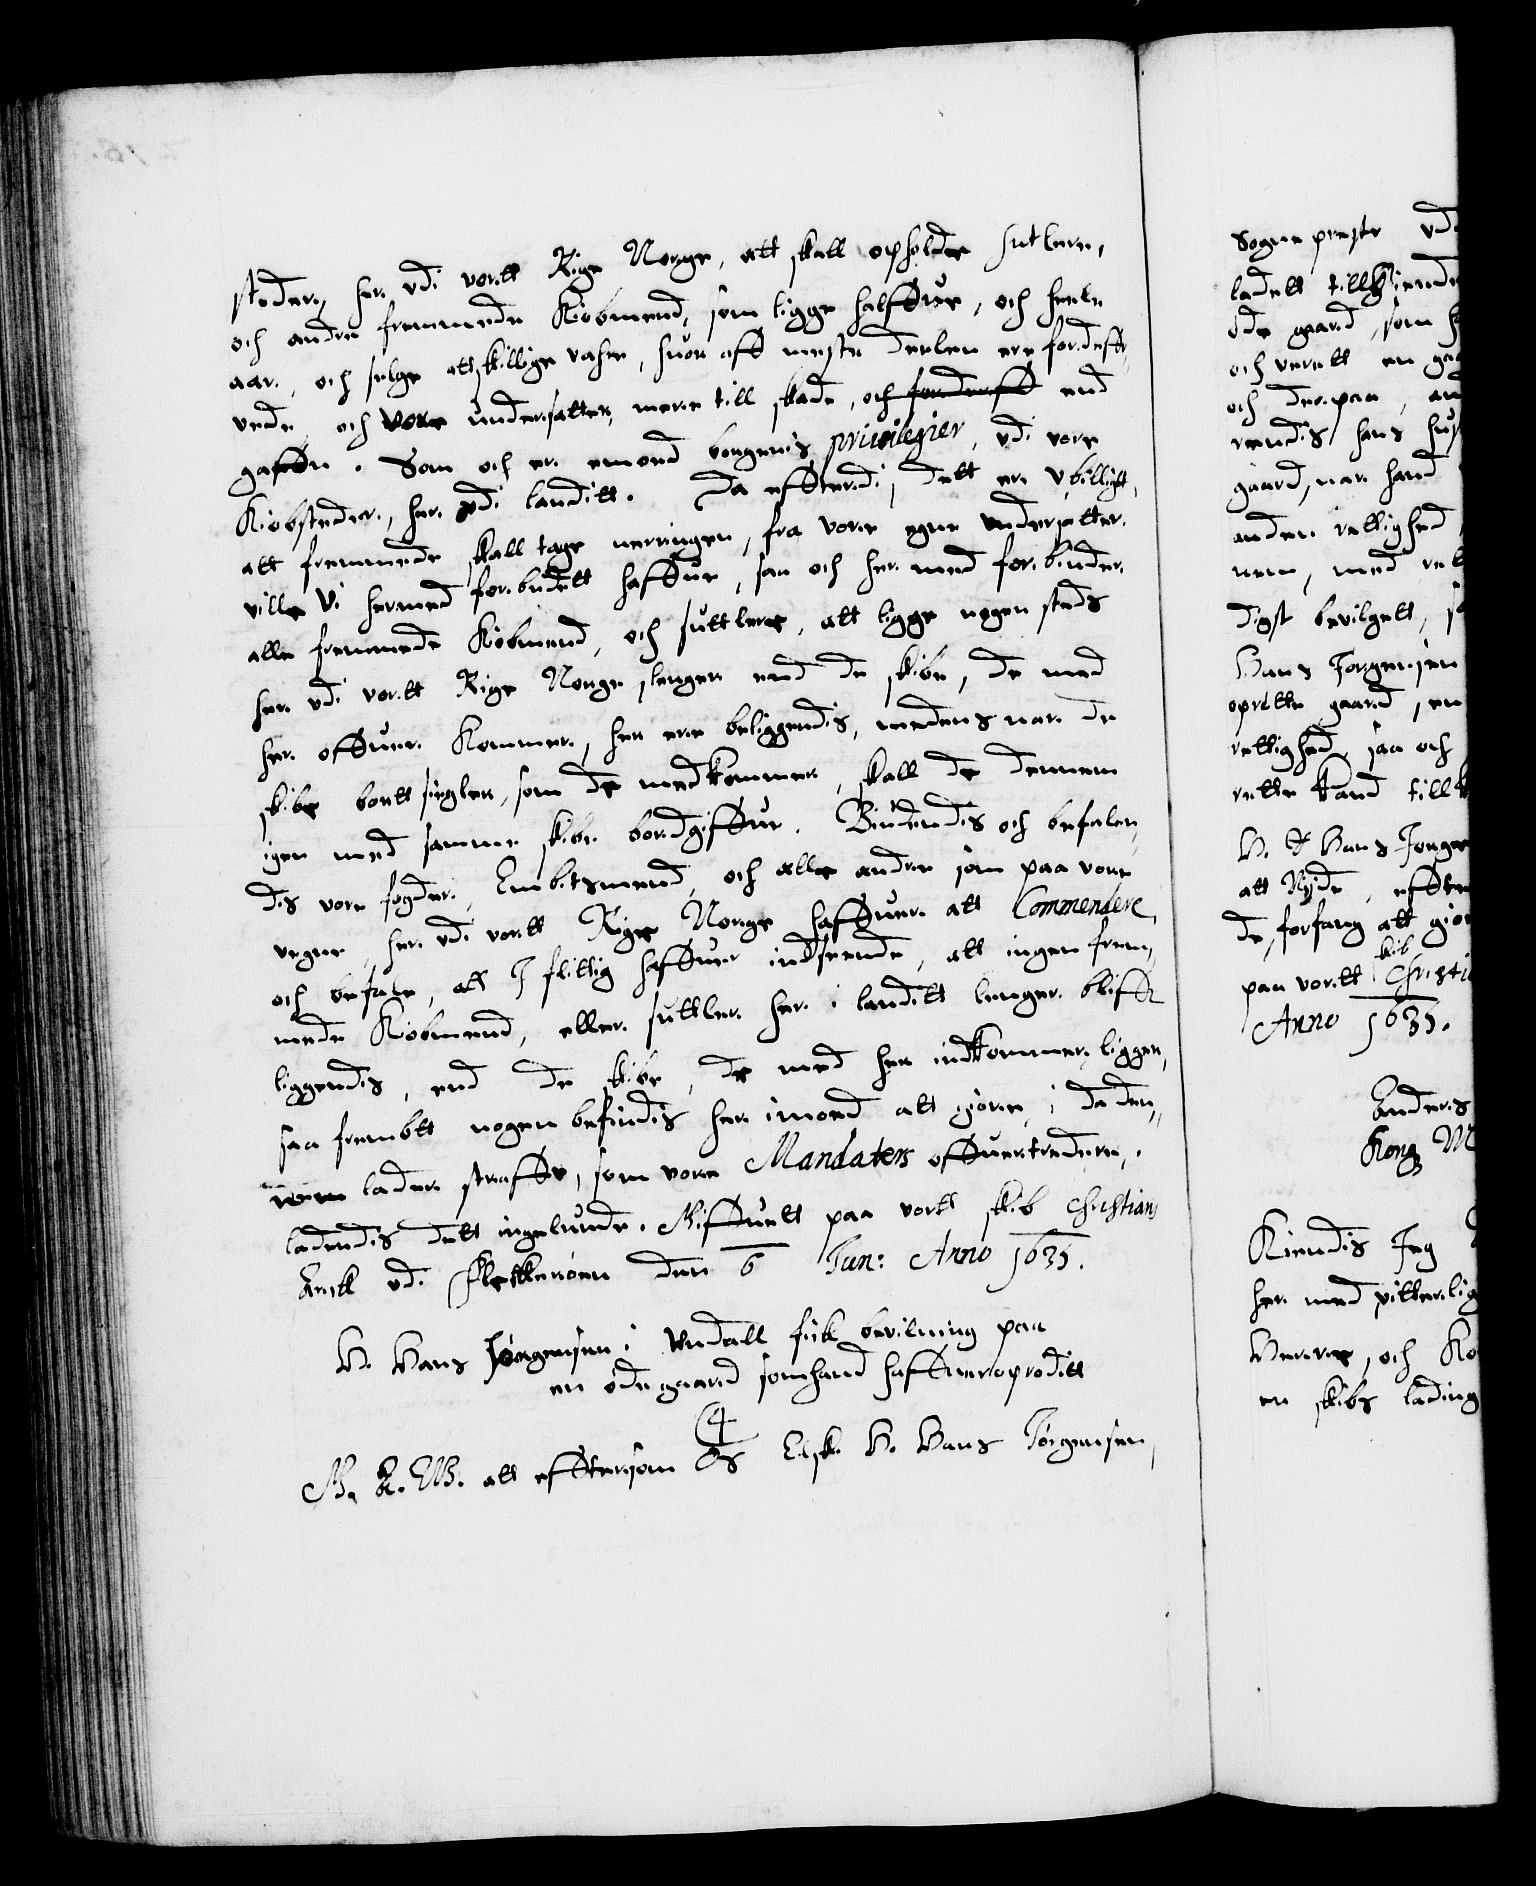 steder, her udi vortt Rige Norge, att skall opholde sutlere,
och andre fremmede Kiöbmend, som ligge halffue, och heele
aar, och selge attskillige vahre, huor aff meste deelen ere fordeff
uede, och vore undersatter, mere till skade, och forderff end
gaffn. Som och er emoed borgernis privilegier, udi vore
Kiöbsteder, her udi landitt. Da effterdi, dett er ubilligt,
att fremmede skall tage nerringen, fra vore egne undersatter.
ville Vi hermed forbudett haffue, saa och her med forbinder
alle fremmede Kiöbmend, och suttlere, att ligge nogen steds
her udi vortt Rige Norge lenger end de skibe, de med
her offuer Kommer, her ere beliggendis, medens nar de
skibe bortt siegler, som de medkommer, skall de dennem
igen med samme skibe bordgiffue. Biudendis och befalen,
dis vore fogder, Embitsmend, och alle andre som paa vore
vegne, her udi vortt Rige Norge haffuer att Commendere,
och befale, att I flittig haffuer indseende, att ingen frem,
mede Kiöbmend, eller suttler her i landitt lenger bliffe
liggendis, end de skibe, de med her indkommer, ligger,
saa frembtt nogen befindis her imoed att giöre, i da den,
nem lader straffe, som vore Mandaters offuertredere,.
ladendis dett ingelunde. Skiffuett paa vortt skib Christian,
udi Flekkeröen den 6 Jun: Anno 1635.
H. Hans Jörgensen i Undall fick bevilning paa
en öde gaard somhand haffuer oproditt
4
att efftersom Os Elsk. H. Hans Jörgensen,
Sogneprest udi
ladett tillkiende
öde gaard, som h
och verett en gaa
och der paa, an
rendis hans hus
gaard, nar hand
anden rettighed,
nem, med rett
digst bevilgett, s
Hans Jörgensen
oprette gaard, en
rettighed, saa och
rette Kand till k
H. Hans Jörge
att Nyde, effte
de, forfang att giör
paa vortt skib Christi
Anno 1635.
Anders
Kong M
Kiendis Jeg
her med vitterlig
Herre, och Ko
en skibs lading